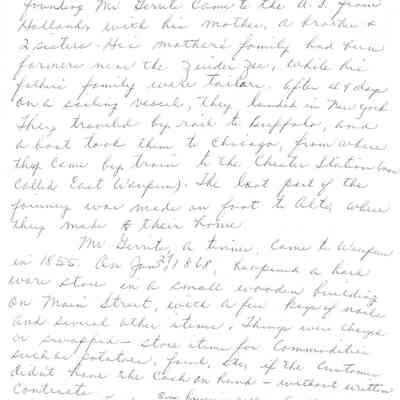 founding Mr Gerrit came to the U.S. from
Holland, with his mother, a brother &
2 sisters. His mother's family had been
farmers near the Zeider Zee, while his
father's family were tailors. After 49 days
on a sailing vessel, they landed in New York
They traveled by rail to Buffalo, and
a boat took them to Chicago, from where
they came by train to the Chester Station (now
called East Waupun). The last part of the
journey was made on foot to Alto, where
they made their home.
Mr Gerrit, a tinner, came to Waupun
in 1855. On Jan 1868, he opened a hard
ware store in a small wooden building
on Main Street, with a few kegs of nails
and several other items. Things were charged
or swapped - store items for commodities
such as potatoes, food, etc, if the customer
didn't have the cash on hand - without written
contracts